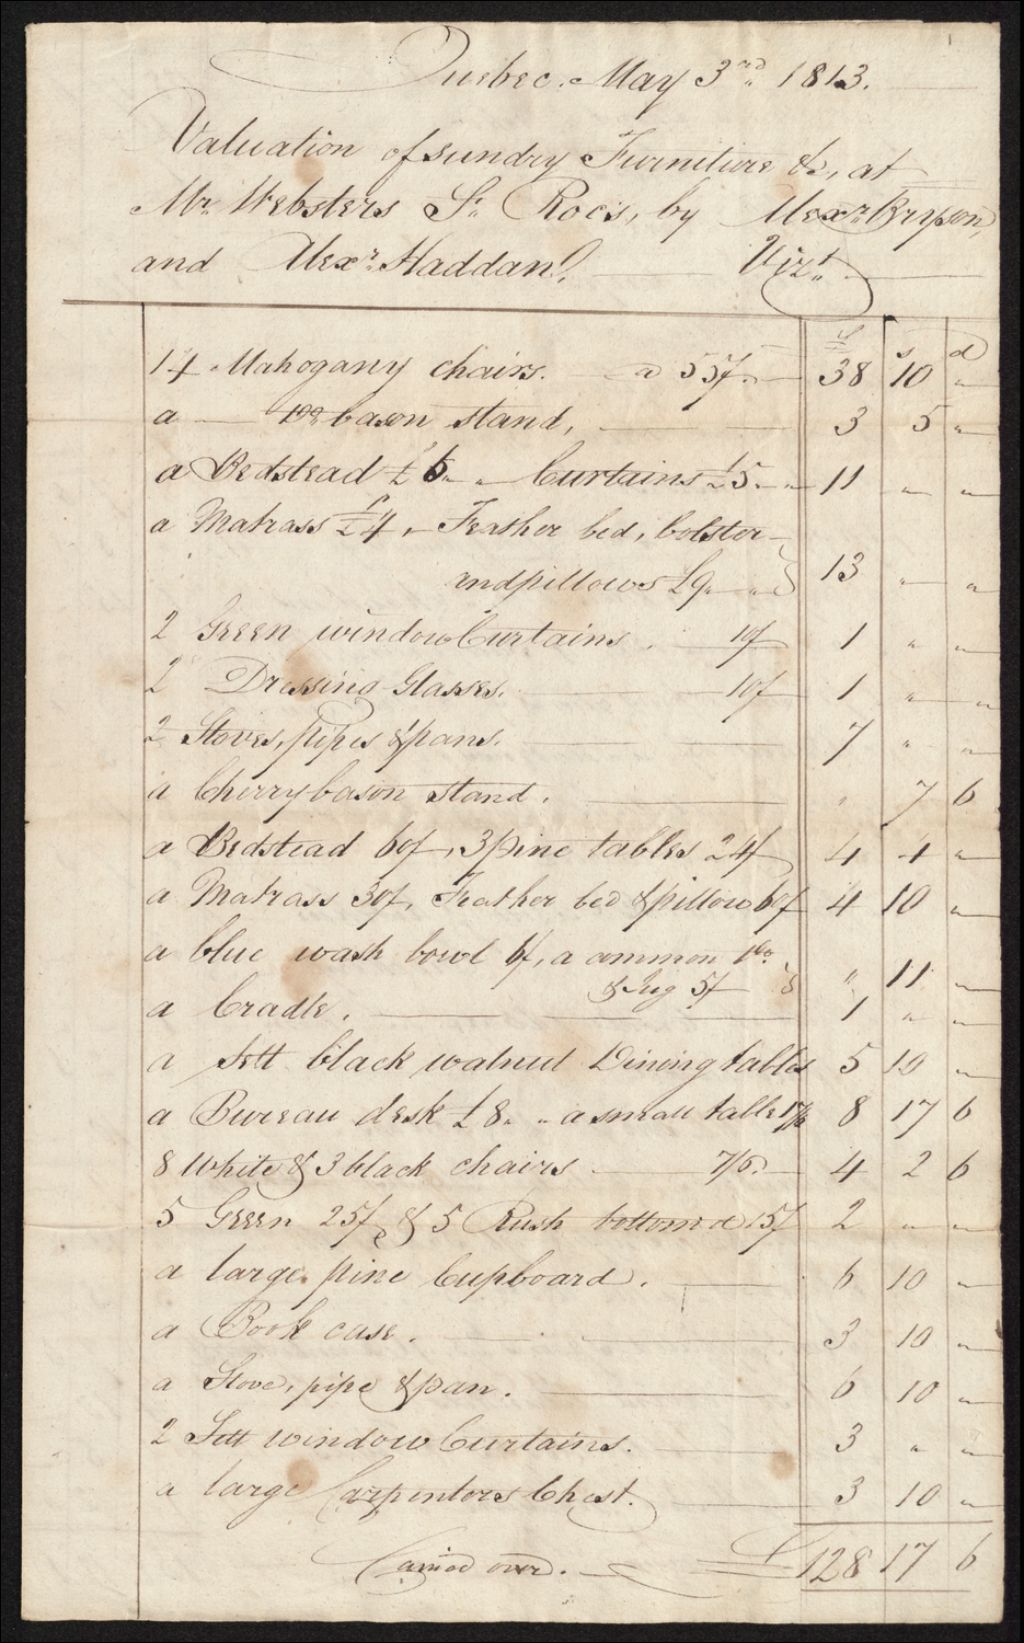 Quebec. May 3rd 1813.
Valuation of sundry Furniture &c, at
Mr. Websters St. Rocs, by Alexr Bryson,
and Alexr. Haddan. Vizt.
£ s d
14 Mahogany chairs. a 55/. 38 10 "
a do bason stand, 3 5 "
a Bedstead £6 " " Curtains £5 " " 11 " "
a Matrass £4, Feather bed, bolster
and pillows £9 " " } 13 " "
2 Green window Curtains. 10/ 1 " "
2 Dressing Glasses. 10/ 1 " "
2 Stoves, pipes & pans. 7 " "
a Cherry bason stand. " 7 6
a Bedstead 60/, 3 pine tables 24/ 4 4 "
a Matrass 30/, Feather bed & pillow 60/ 4 10 "
a blue wash bowl 6/, a common do.
& Jug 5/ } " 11 "
a Cradle. 1 " "
a sett black walnut Dining tables 5 10 "
a Bureau desk £8 " " a small table 17/6 8 17 6
8 White & 3 black chairs 7/6. 4 2 6
5 Green 25/, & 5 Rush bottom'd 15/ 2 " "
a large pine Cupboard. 6 10 "
a Book case. 3 10 "
a Stove, pipe & pan. 6 10 "
2 Sett window Curtains. 3 " "
a large Carpenters Chest. 3 10 "
Carried over. £ 128 17 6